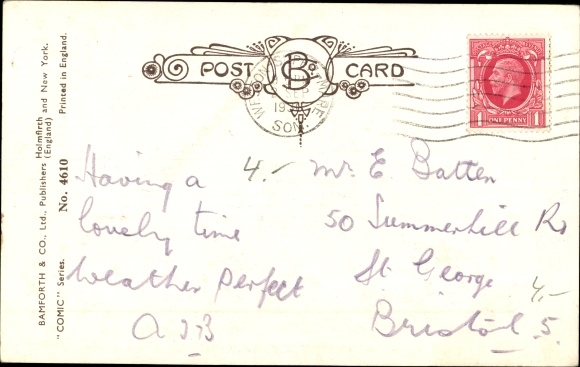 BAMFORTH & CO., Ltd., Publishers Holmfirth (England) and New York.
"COMIC" Series. No. 4610 Printed in England.
POST CARD
ONE PENNY
1 1
Having a
lovely time
Weather perfect
4.-
Mr E Batten
50 Summerhill Rd
St. George
Bristol 5.
4.-